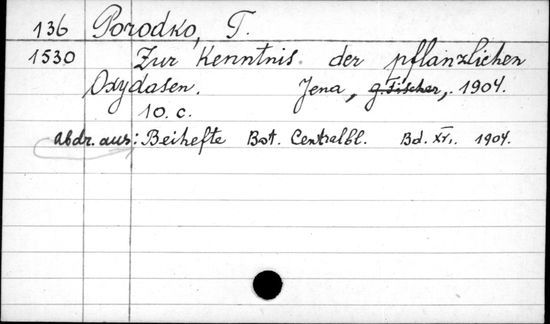 136 Porodko, T.
1530 Zur Kenntnis der pflanzlichen
Oxydasen. Jena, G. Fischer, 1904.
10. c.
Abdr. aus: Beihefte Bot. Centralbl. Bd. XVI. 1904.